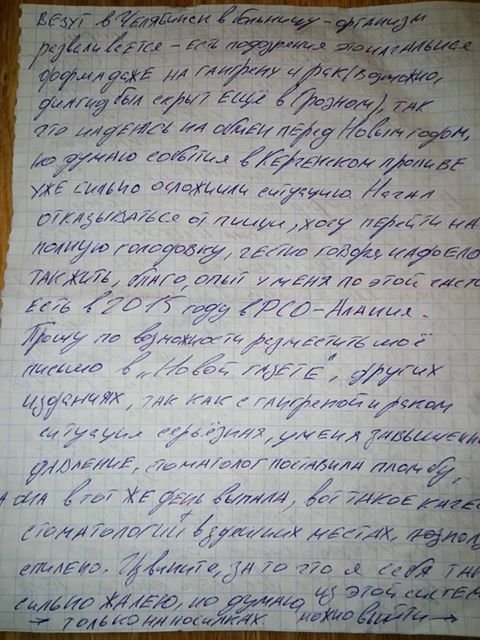 ВЕЗУТ в Челябинск в больницу - организм
разваливается - есть подозрения
форма даже на гангрену и рак (возможно,
был скрыт ЕЩЁ в Грозном), так
что надеюсь на обмен перед Новым годом,
но думаю события в Керченском проливе
уже сильно осложнили ситуацию. Начал
отказываться от пищи, хочу перейти на
полную голодовку, честно говоря надоело
так жить, благо, опыт у меня по этой части
есть в 2015 году в РСО-Алания.
Прошу по возможности разместить моё
письмо в „Новой газете", других
изданиях, так как с гангреной и раком
ситуация серьёзная, у меня завышенно
давление, стоматолог поставила пломбу,
а она в тот же день выпала, вот такое качес
стоматологии в здешних местах,
спилено. Извините, за то что я себя так
сильно жалею, но думаю из этой систем
→ только на носилках можно выйти →